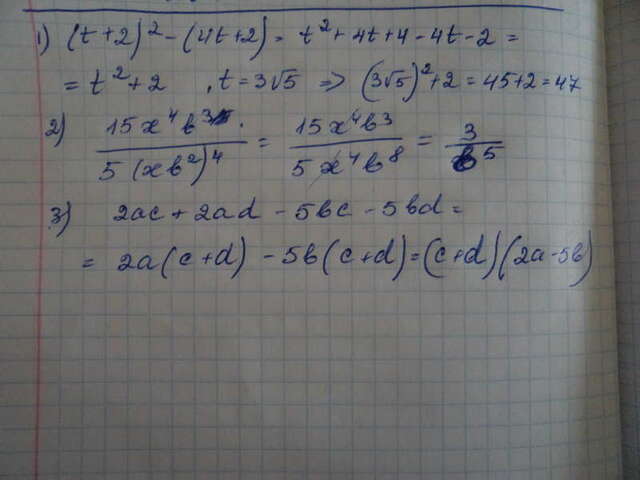 1) (t+2)² - (4t+2) = t² + 4t + 4 - 4t - 2 =
= t² + 2 , t = 3√5 => (3√5)² + 2 = 45 + 2 = 47
2) 15x⁴b³ / 5(xb²)⁴ = 15x⁴b³ / 5x⁴b⁸ = 3 / b⁵
3) 2ac + 2ad - 5bc - 5bd =
= 2a(c+d) - 5b(c+d) = (c+d)(2a-5b)